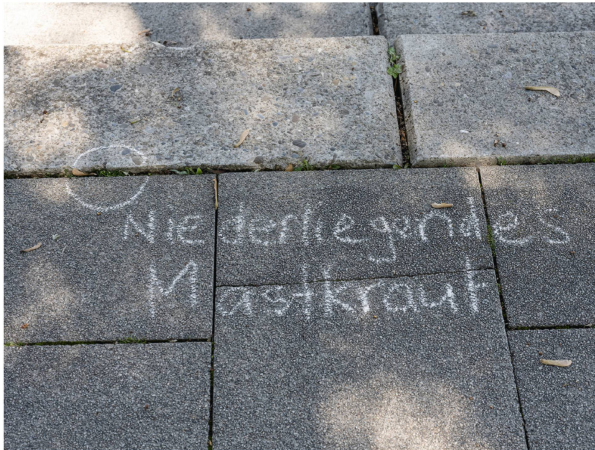 Niederliegendes
Mastkraut